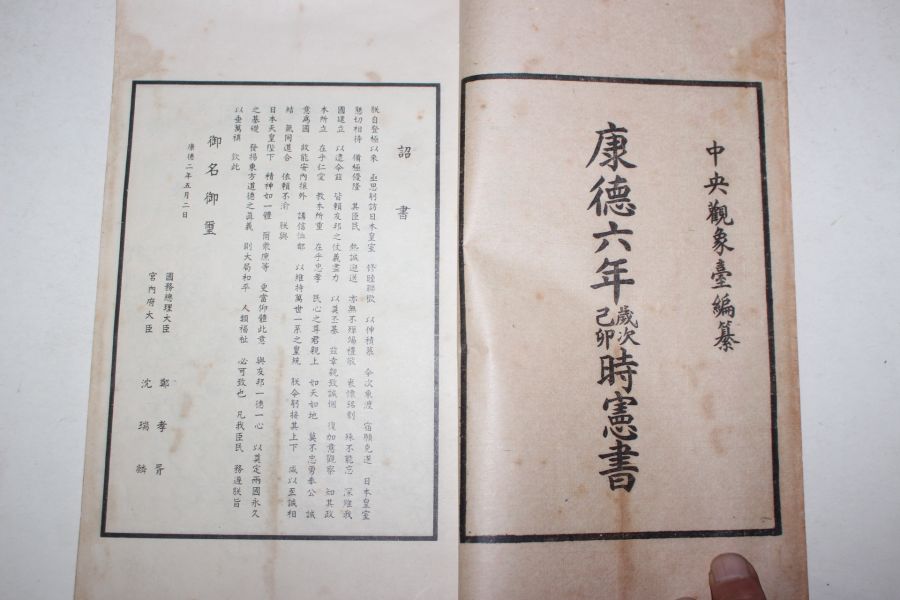 中央觀象臺編纂
康德六年歲次己卯時憲書
詔書
朕自登極以來 亟思躬訪日本皇室 修睦聯歡 以伸積慕 今次東渡 宿願克遂 日本皇室
懇切相待 備極優隆 其臣民 熱誠迎送 亦無不殫竭禮敬 衷懷銘刻 殊不能忘 深維我
國建立 以逮今茲 皆賴友邦之仗義盡力 以奠丕基 茲幸親致誠悃 復加意觀察 知其政
本所立 在乎仁愛 教本所重 在乎忠孝 民心之尊君親上 如天如地 莫不忠勇奉公 誠
意為國 故能安內攘外 講信恤鄰 以維持萬世一系之皇統 朕今躬接其上下 咸以至誠相
結 氣同道合 依賴不渝 朕與
日本天皇陛下 精神如一體 爾衆庶等 更當仰體此意 與友邦一德一心 以奠定兩國永久
之基礎 發揚東方道德之眞義 則大局和平 人類福祉 必可致也 凡我臣民 務遵朕旨
以垂萬禩 欽此
御名御璽
康德二年五月二日
國務總理大臣 鄭孝胥
宮內府大臣 沈瑞麟